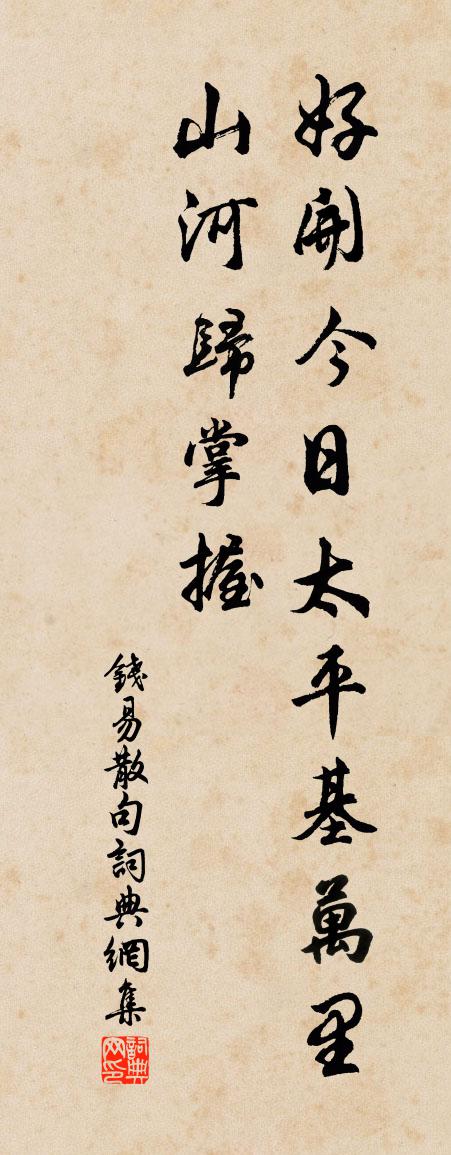 好開今日太平基萬里
山河歸掌握
錢易散句詞典網集
詞典网印